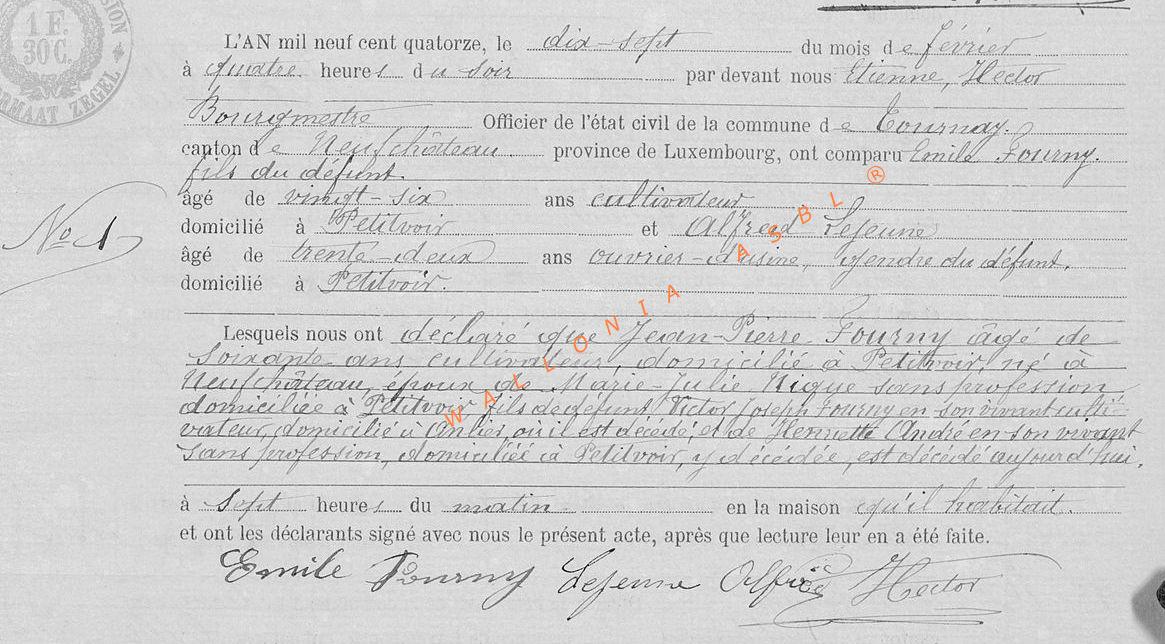 1 F.
30 C.
FORMAAT ZEGEL
L'AN mil neuf cent quatorze, le dix-sept du mois de février
à quatre heures du soir par devant nous Etienne, Hector
Bourgmestre Officier de l'état civil de la commune de Tournay.
canton de Neufchâteau province de Luxembourg, ont comparu Emile Fourny.
fils du défunt.
âgé de vingt-six ans cultivateur
domicilié à Petitvoir et Alfred Lejeune
âgé de trente-deux ans ouvrier-d'usine, gendre du défunt.
domicilié à Petitvoir.
No 1
Lesquels nous ont déclaré que Jean-Pierre Fourny âgé de
soixante ans cultivateur, domicilié à Petitvoir, né à
Neufchâteau, époux de Marie-Julie Nique sans profession,
domiciliée à Petitvoir fils de défunt Victor Joseph Fourny en son vivant culti-
vateur, domicilié à Anlier, où il est décédé, et de Henriette André en son vivant
sans profession, domiciliée à Petitvoir, y décédée, est décédé aujourd'hui.
à sept heures du matin en la maison qu'il habitait.
et ont les déclarants signé avec nous le présent acte, après que lecture leur en a été faite.
Emile Fourny Lejeune Alfred Hector
WALLONIA ASBL ®